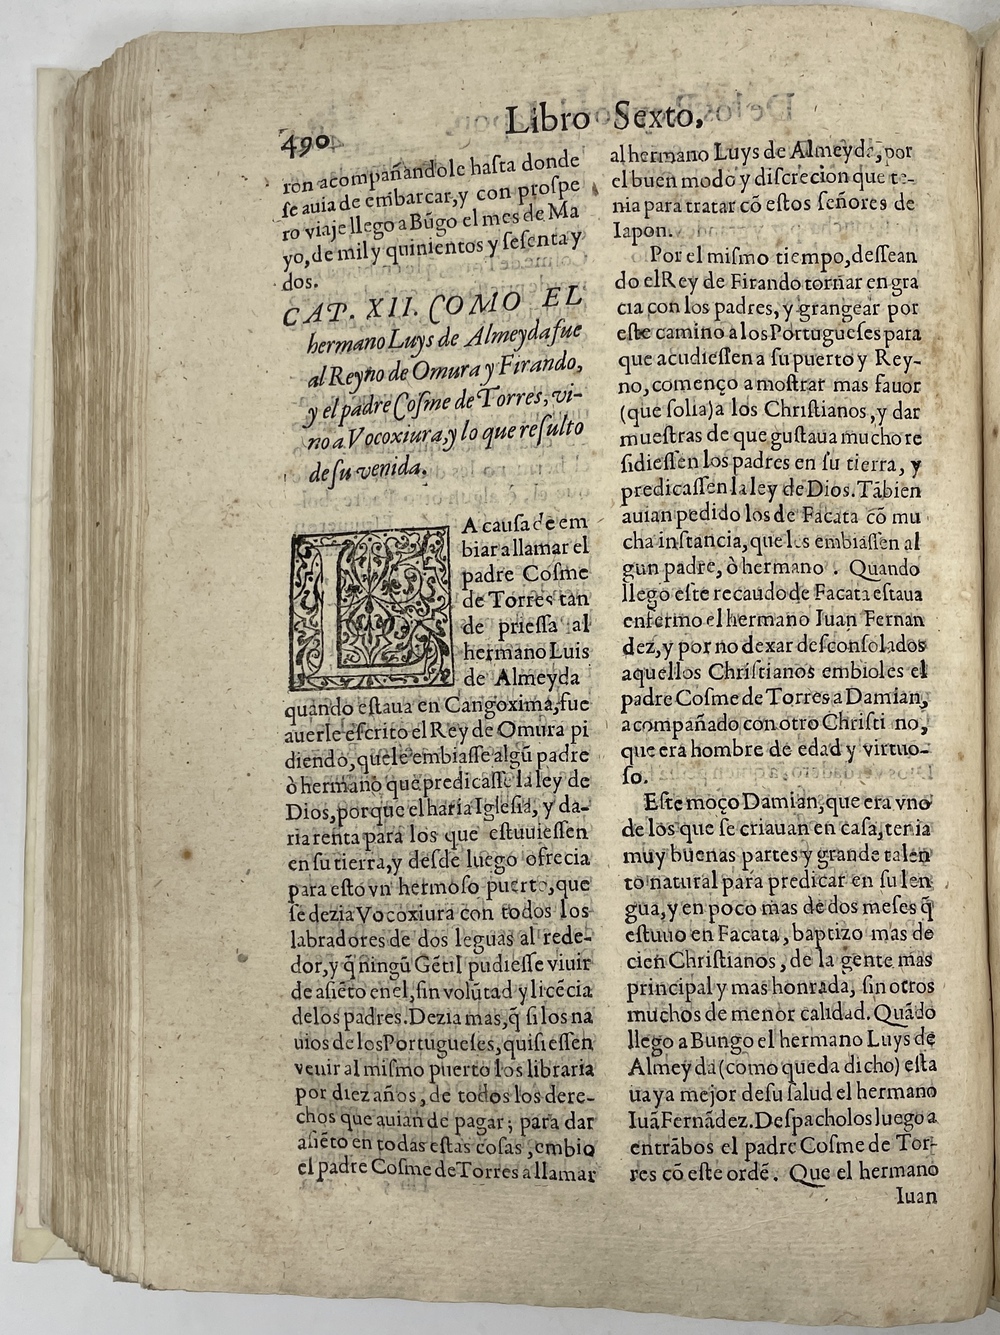 490 Libro Sexto,
ron acompañandole hasta donde
se auia de embarcar, y con prospe
ro viaje llego a Bũgo el mes de Ma
yo, de mil y quinientos y sesenta y
dos.
CAP. XII. COMO EL
hermano Luys de Almeyda fue
al Reyno de Omura y Firando,
y el padre Cosme de Torres, vi-
no a Vocoxiura, y lo que resulto
de su venida.
LA causa de em
biar a llamar el
padre Cosme
de Torres tan
de priessa al
hermano Luis
de Almeyda
quando estaua en Cangoxima, fue
auerle escrito el Rey de Omura pi
diendo, que le embiasse algũ padre
ò hermano que predicasse la ley de
Dios, porque el haria Iglesia, y da-
ria renta para los que estuuiessen
en su tierra, y desde luego ofrecia
para esto vn hermoso puerto, que
se dezia Vocoxiura con todos los
labradores de dos leguas al rede-
dor, y q̃ ningũ Gẽtil pudiesse viuir
de asiẽto en el, sin volũtad y licẽcia
de los padres. Dezia mas, q̃ si los na
uios de los Portugueses, quisiessen
venir al mismo puerto los libraria
por diez años, de todos los dere-
chos que auian de pagar; para dar
asiẽto en todas estas cosas, embio
el padre Cosme de Torres a llamar
al hermano Luys de Almeyda, por
el buen modo y discrecion que te-
nia para tratar cõ estos señores de
Iapon.
Por el mismo tiempo, dessean
do el Rey de Firando tornar en gra
cia con los padres, y grangear por
este camino a los Portugueses para
que acudiessen a su puerto y Rey-
no, començo a mostrar mas fauor
(que solia) a los Christianos, y dar
muestras de que gustaua mucho re
sidiessen los padres en su tierra, y
predicassen la ley de Dios. Tãbien
auian pedido los de Facata cõ mu
cha instancia, que les embiassen al
gun padre, ò hermano. Quando
llego este recaudo de Facata estaua
enfermo el hermano Iuan Fernan
dez, y por no dexar desconsolados
aquellos Christianos embioles el
padre Cosme de Torres a Damian,
acompañado con otro Christi no,
que era hombre de edad y virtuo-
so.
Este moço Damian, que era vno
de los que se criauan en casa, tenia
muy buenas partes y grande talen
to natural para predicar en su len
gua, y en poco mas de dos meses q̃
estuuo en Facata, baptizo mas de
cien Christianos, de la gente mas
principal y mas honrada, sin otros
muchos de menor calidad. Quãdo
llego a Bungo el hermano Luys de
Almeyda (como queda dicho) esta
ua ya mejor de su salud el hermano
Iuã Fernãdez. Despacholos luego a
entrãbos el padre Cosme de Tor-
res cõ este ordẽ. Que el hermano
Iuan